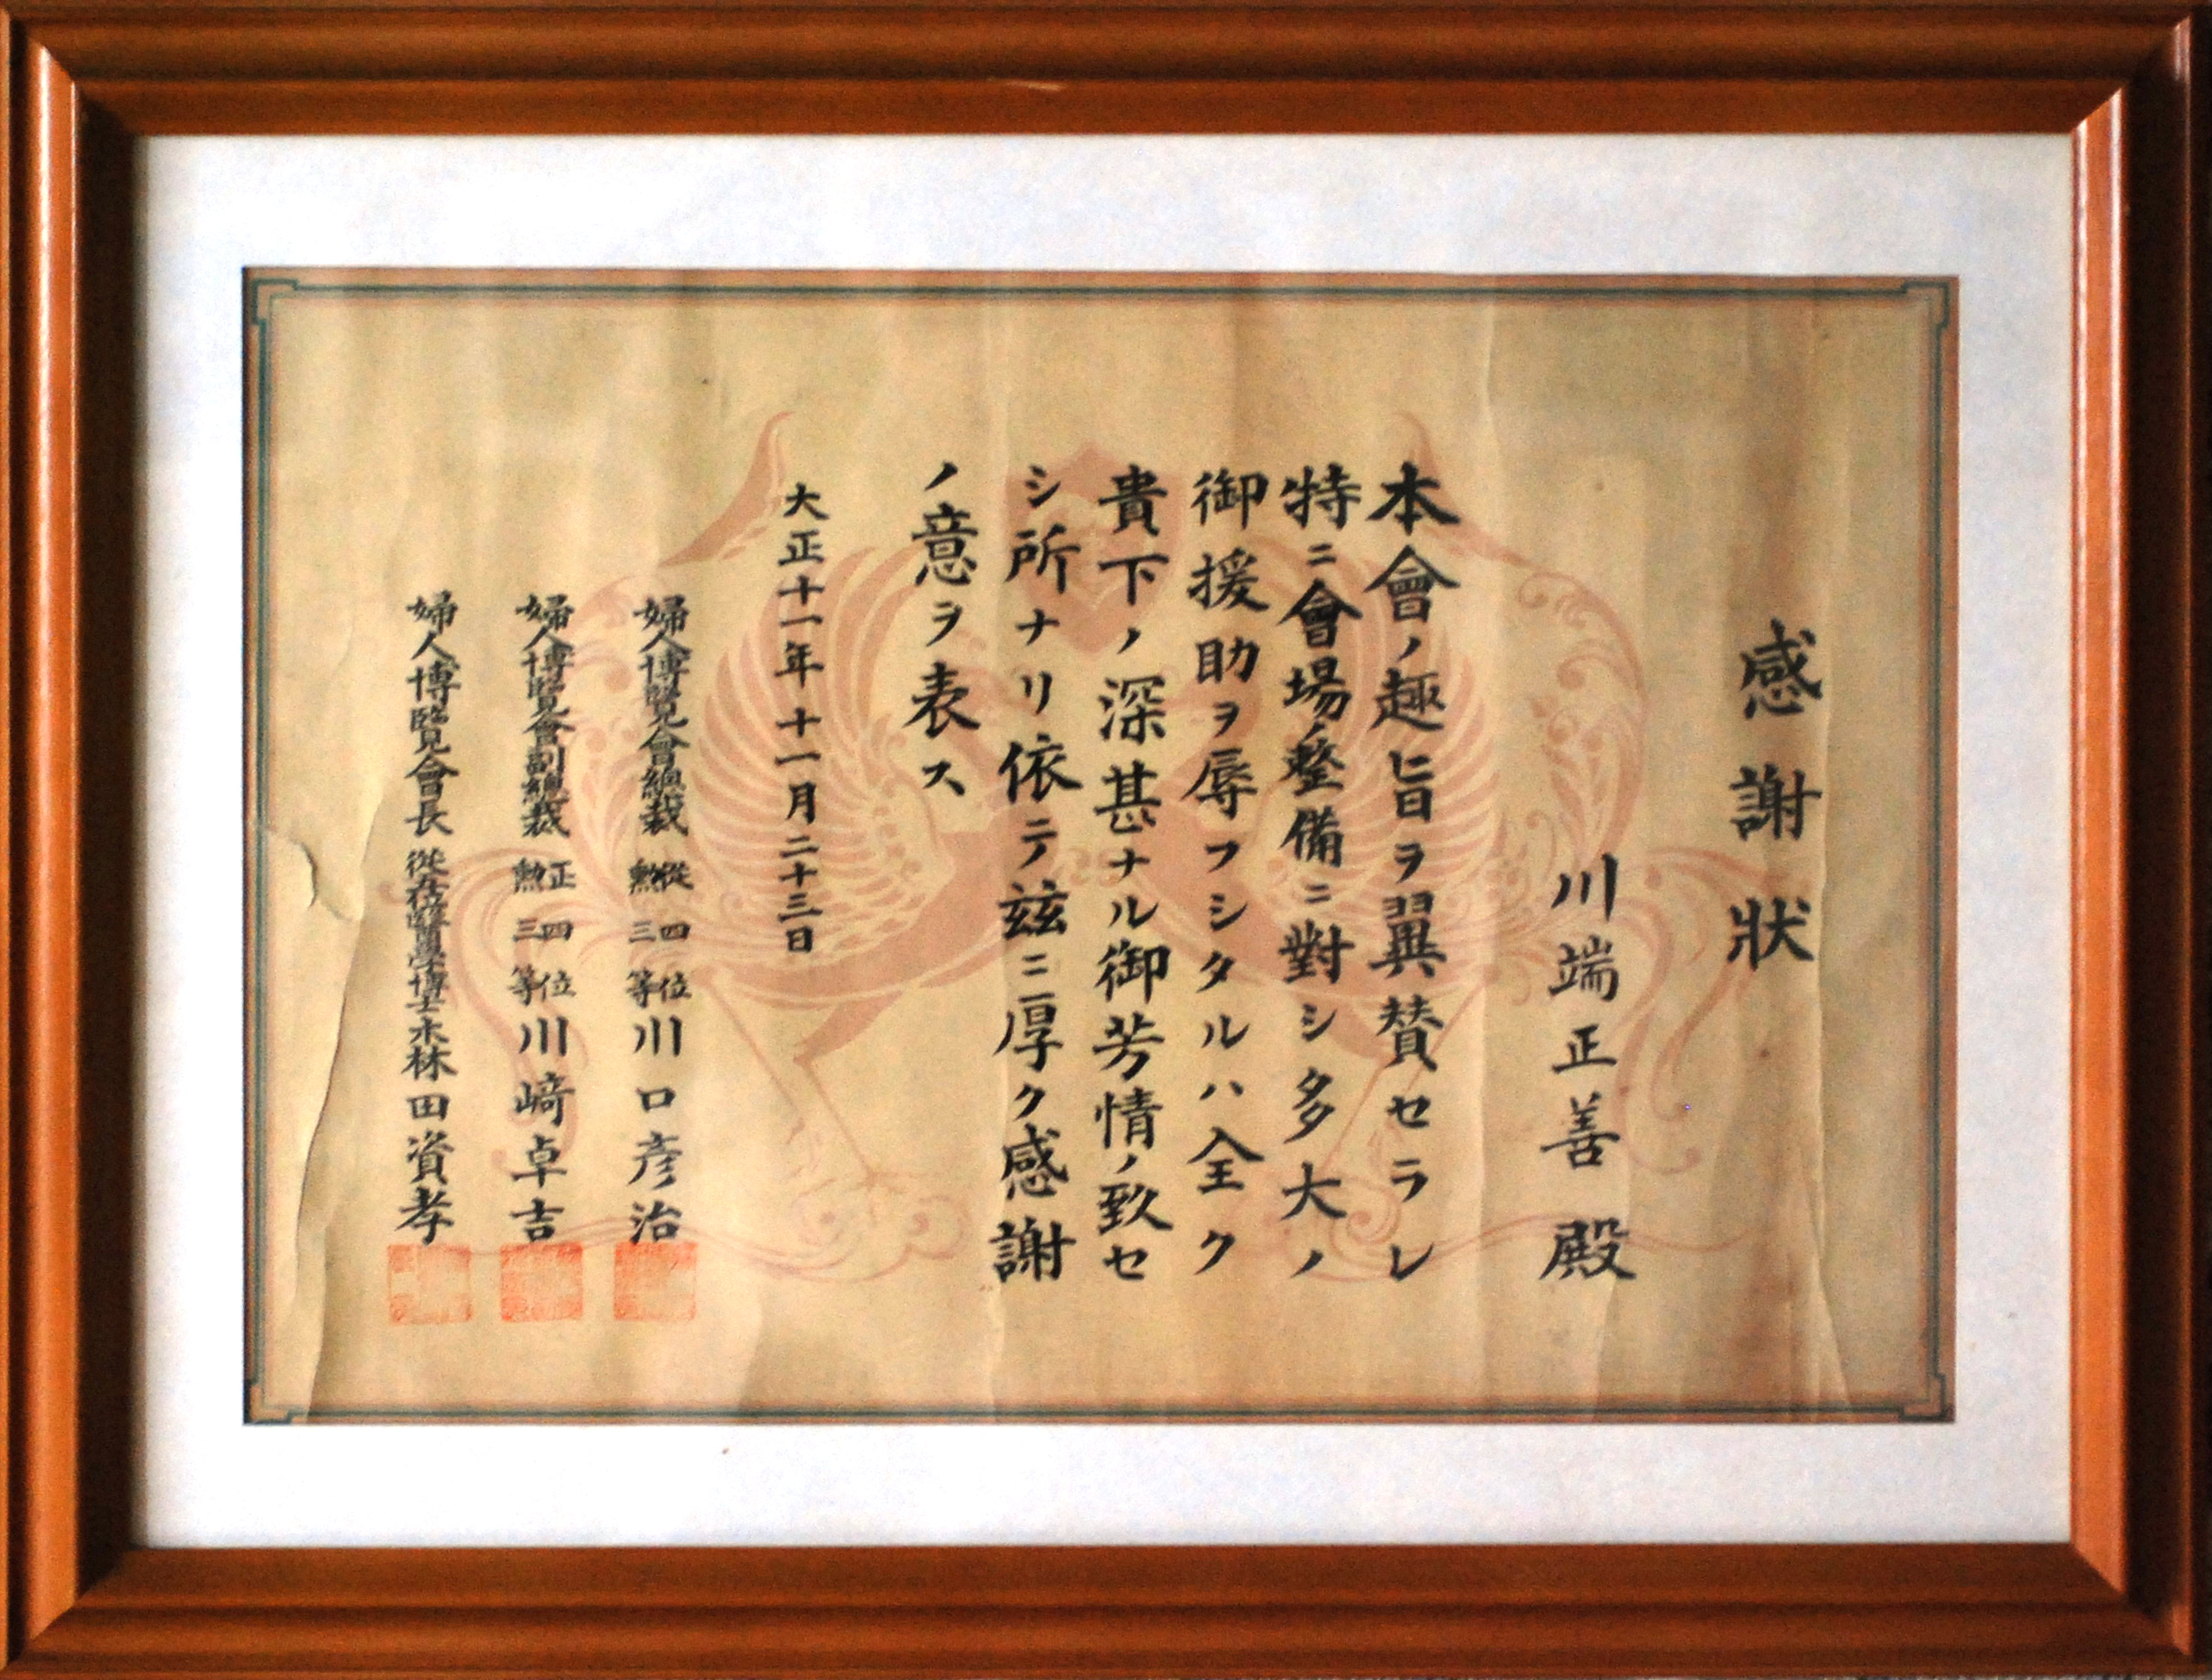 感謝狀
川端正善殿
本會ノ趣旨ヲ翼賛セラレ
特ニ會場ノ整備ニ對シ多大ノ
御援助ヲ辱フシタルハ全ク
貴下ノ深甚ナル御芳情ノ致セ
シ所ナリ依テ玆ニ厚ク感謝
ノ意ヲ表ス
大正十一年十一月二十三日
婦人博覽會總裁 從四位勲三等 川口彦治
婦人博覽會副總裁 正四位勲三等 川﨑卓吉
婦人博覽會長 從 醫學博士 林田資孝